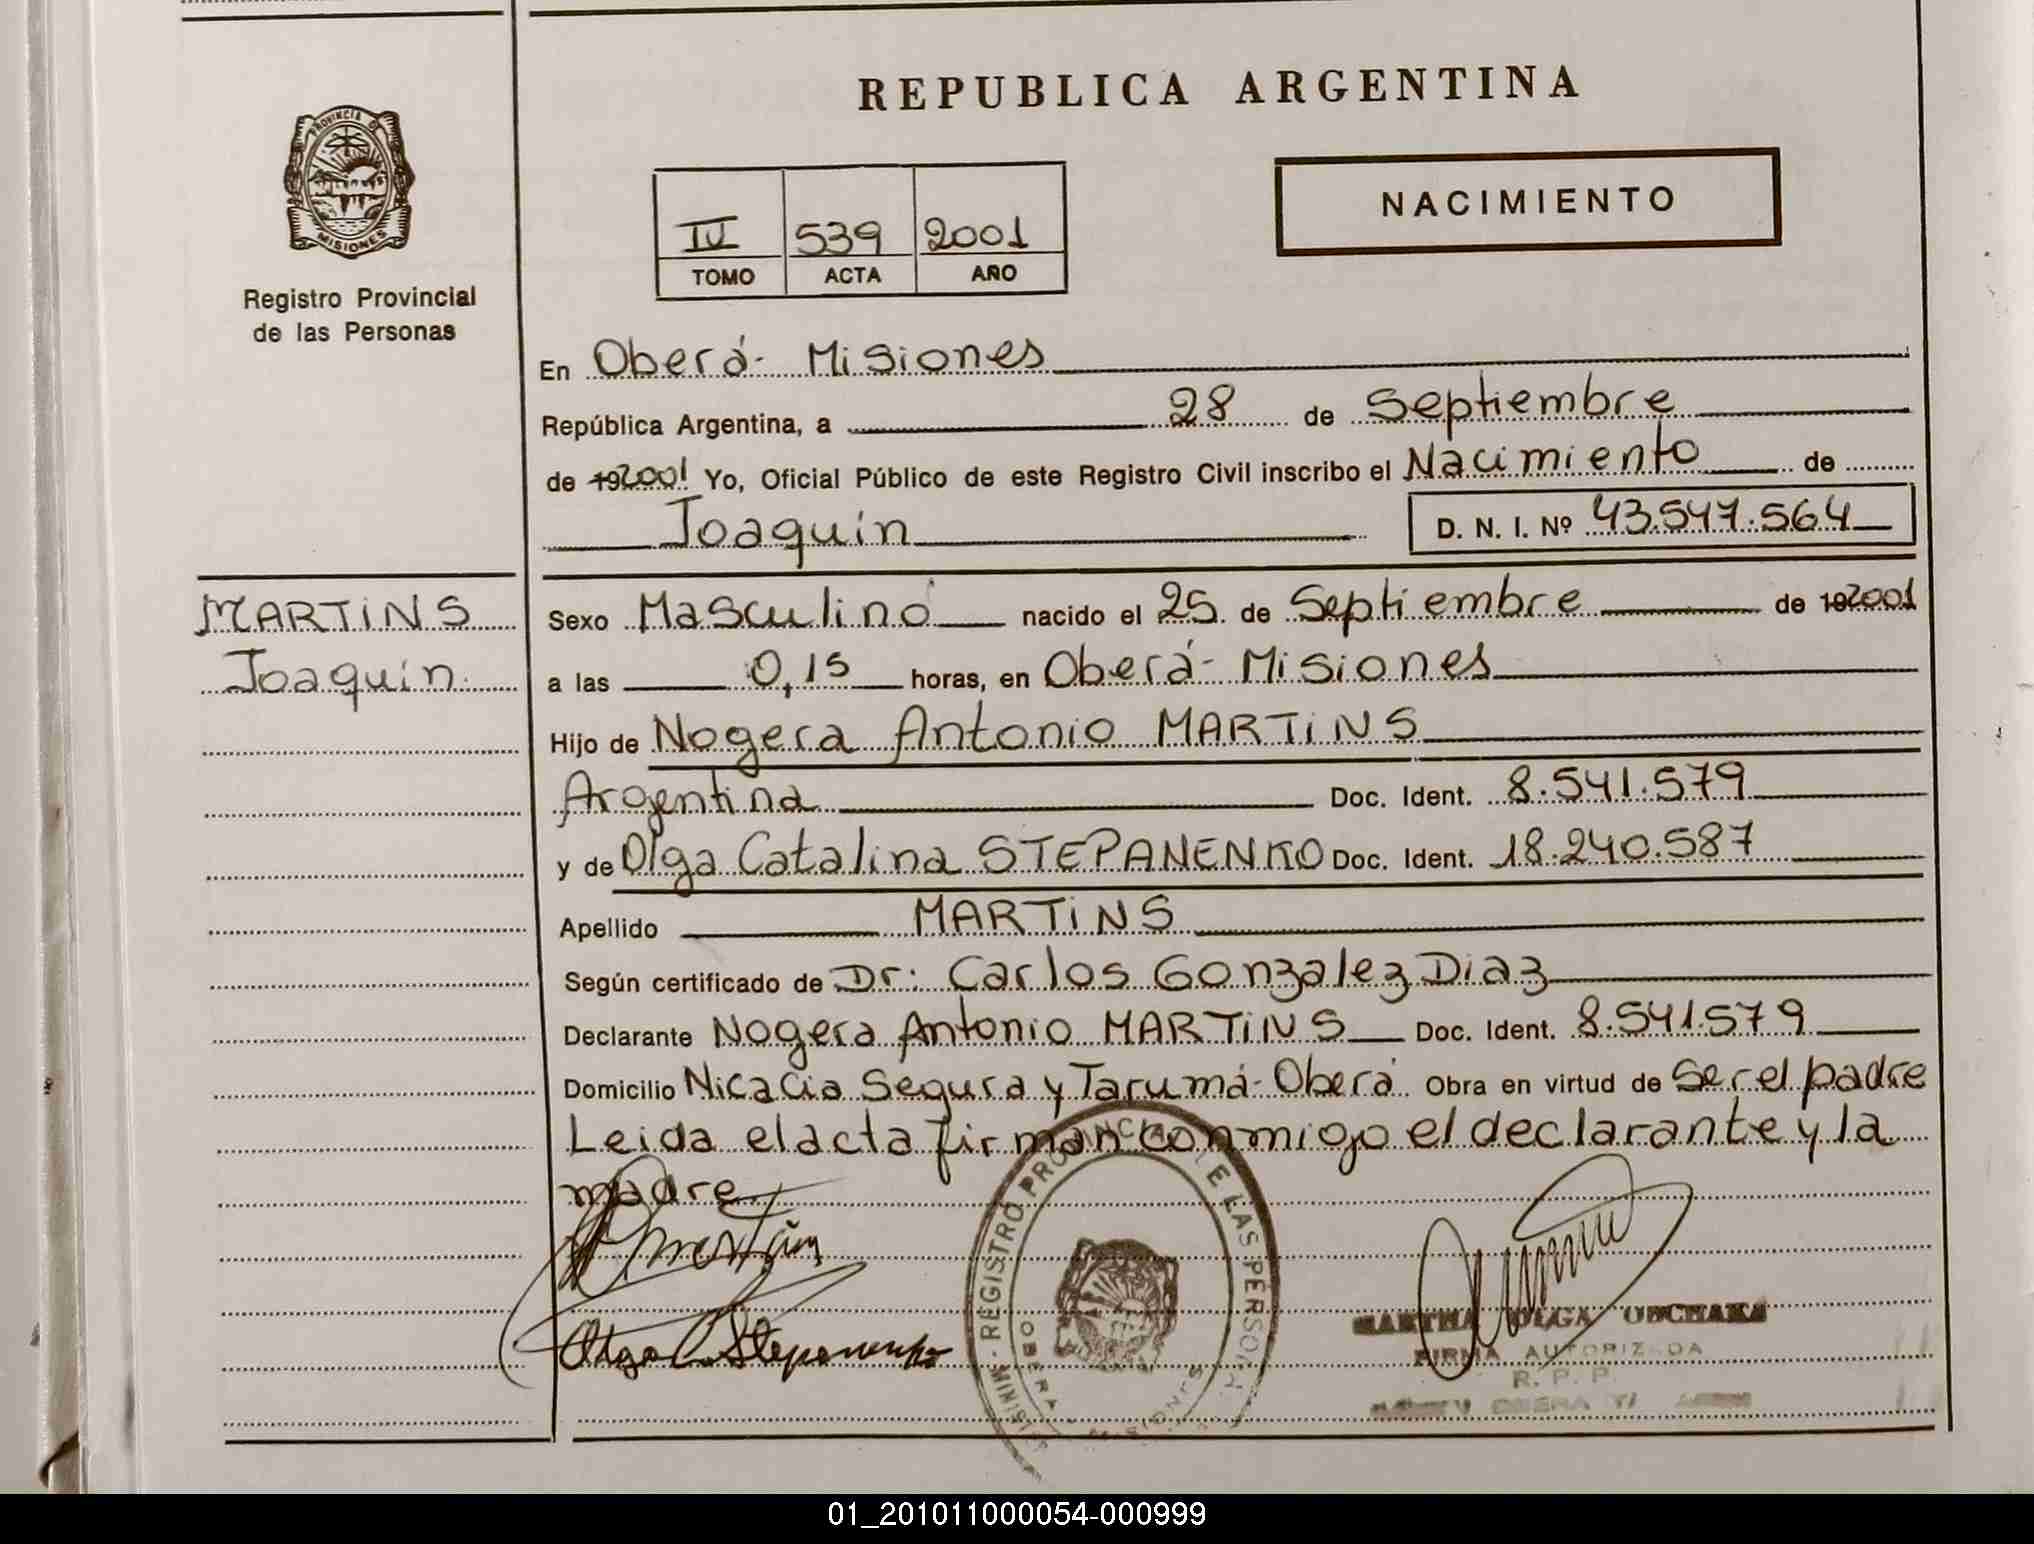 REPUBLICA ARGENTINA
PROVINCIA DE
MISIONES
Registro Provincial
de las Personas
IV 539 2001
TOMO ACTA AÑO
NACIMIENTO
En Oberá - Misiones
República Argentina, a 28 de Septiembre
de 192001 Yo, Oficial Público de este Registro Civil inscribo el Nacimiento de
Joaquín D. N. I. Nº 43.547.564
MARTiNS
Joaquín
Sexo Masculino nacido el 25 de Septiembre de 192001
a las 0,15 horas, en Oberá - Misiones
Hijo de Nogera Antonio MARTiNS
Argentina Doc. Ident. 8.541.579
y de Olga Catalina STEPANENKO Doc. Ident. 18.240.587
Apellido MARTiNS
Según certificado de Dr: Carlos Gonzalez Diaz
Declarante Nogera Antonio MARTiNS Doc. Ident. 8.541.579
Domicilio Nicacio Segura y Tarumá - Oberá Obra en virtud de ser el padre
Leida el acta firman conmigo el declarante y la
madre
Olga C. Stepanenko
REGISTRO PROVINCIAL DE LAS PERSONAS
OBERA
MISIONES
MARTHA OLGA
FIRMA AUTORIZADA
R. P. P.
OBERA
01_201011000054-000999